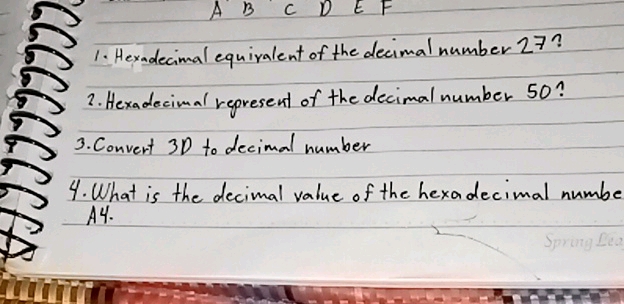 A B C D E F
1. Hexadecimal equivalent of the decimal number 27?
2. Hexadecimal represent of the decimal number 50?
3. Convert 3D to decimal number
4. What is the decimal value of the hexadecimal numbe
A4.
Spring Lea